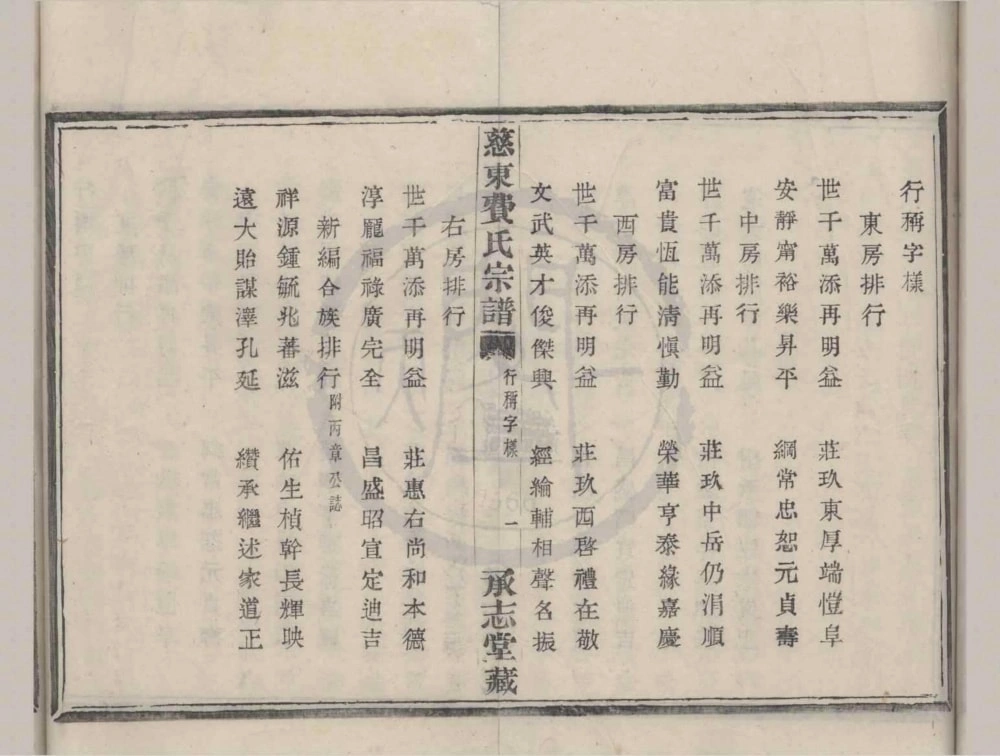 行稱字樣
東房排行
世千萬添再明益 莊玖東厚端愷阜
安靜甯裕樂昇平 綱常忠恕元貞壽
中房排行
世千萬添再明益 莊玖中岳仍涓順
富貴恆能清愼勤 榮華亨泰緣嘉慶
西房排行
世千萬添再明益 莊玖西啓禮在敬
文武英才俊傑興 經綸輔相聲名振
慈東費氏宗譜 行稱字樣 一 承志堂藏
右房排行
世千萬添再明益 莊惠右尚和本德
淳龎福祿廣完全 昌盛昭宣定迪吉
新編合族排行 附丙章公誌
祥源鍾毓兆蕃滋 佑生楨幹長輝映
遠大貽謀澤孔延 纘承繼述家道正